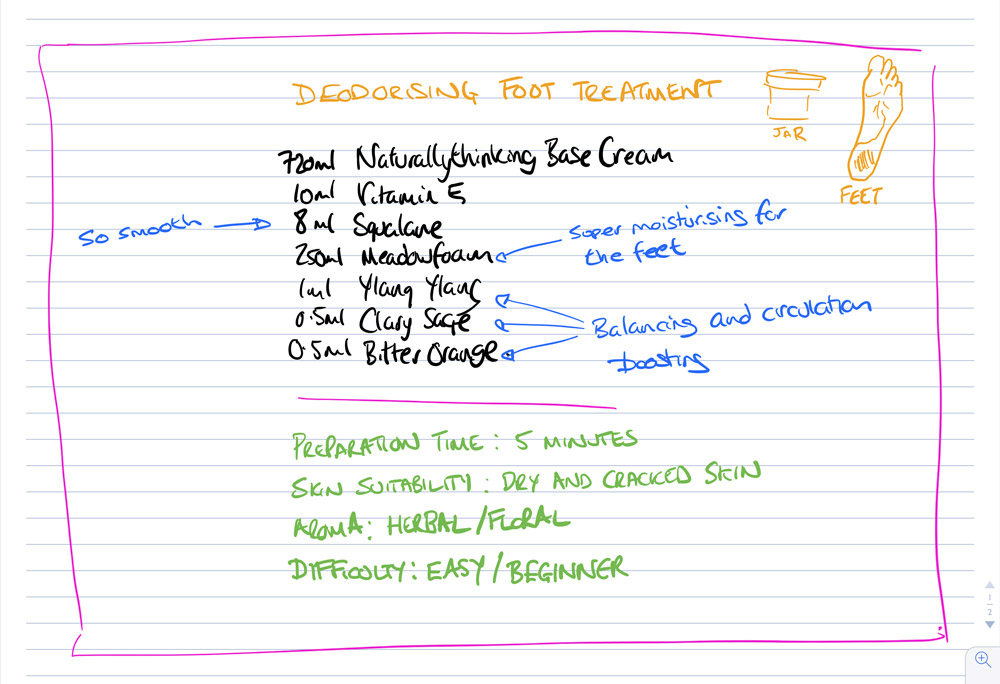 DEODORISING FOOT TREATMENT
JAR
FEET
720ml Naturallythinking Base Cream
10ml Vitamin E
So smooth
8ml Squalane
250ml Meadowfoam
Super moisturising for
the feet
1ml Ylang Ylang
0.5ml Clary Sage
0.5ml Bitter Orange
Balancing and circulation
boosting
PREPARATION TIME: 5 MINUTES
SKIN SUITABILITY: DRY AND CRACKED SKIN
AROMA: HERBAL/FLORAL
DIFFICULTY: EASY/BEGINNER
1
2